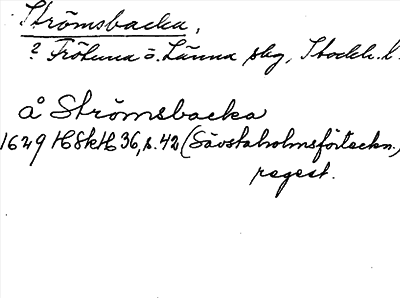 Strömsbacka,
? Frötuna o. Länna skg, Stockh. l.
å Strömsbacka
1629 HSkH 36, s. 42 (Sävstaholmsförteckn.)
regest.